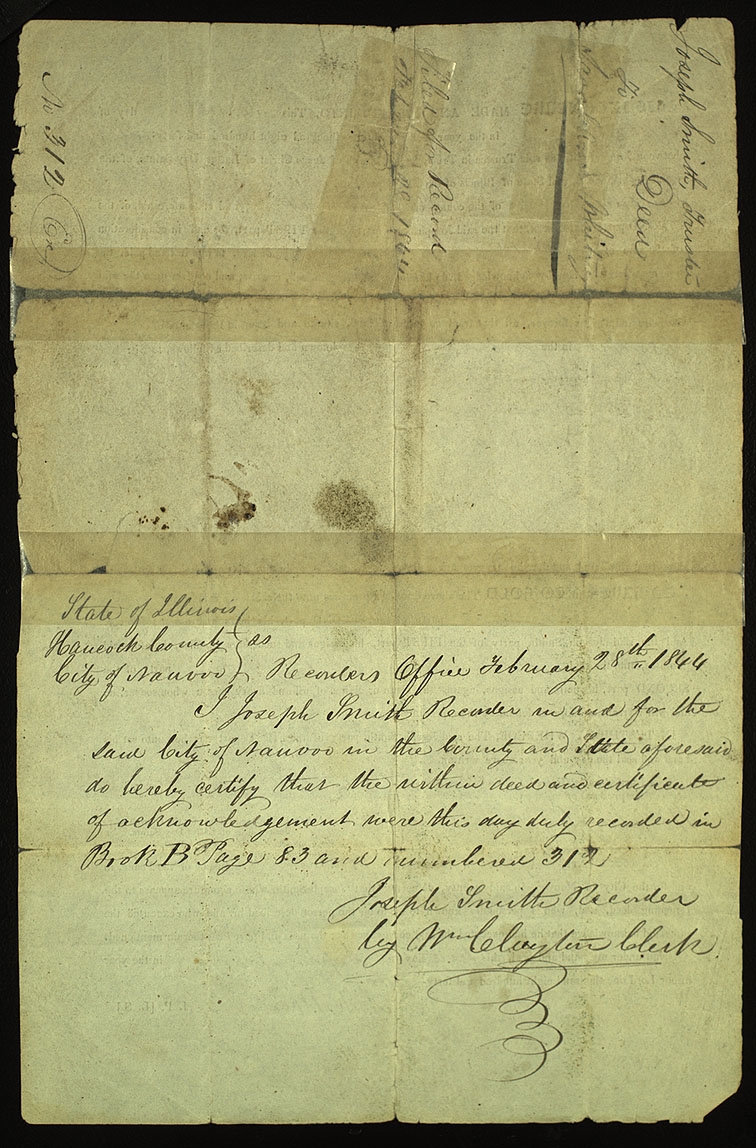 Joseph Smith, Trustee
to
Deed
Whitney
Filed for Record
28 1844
No 312
Ex
State of Illinois
Hancock County } ss
City of Nauvoo Recorders Office February 28th 1844
I Joseph Smith Recorder in and for the
said City of Nauvoo in the County and State aforesaid
do hereby certify that the within deed and certificate
of acknowledgement were this day duly recorded in
Book B Page 83 and numbered 312
Joseph Smith Recorder
by Wm Clayton Clerk